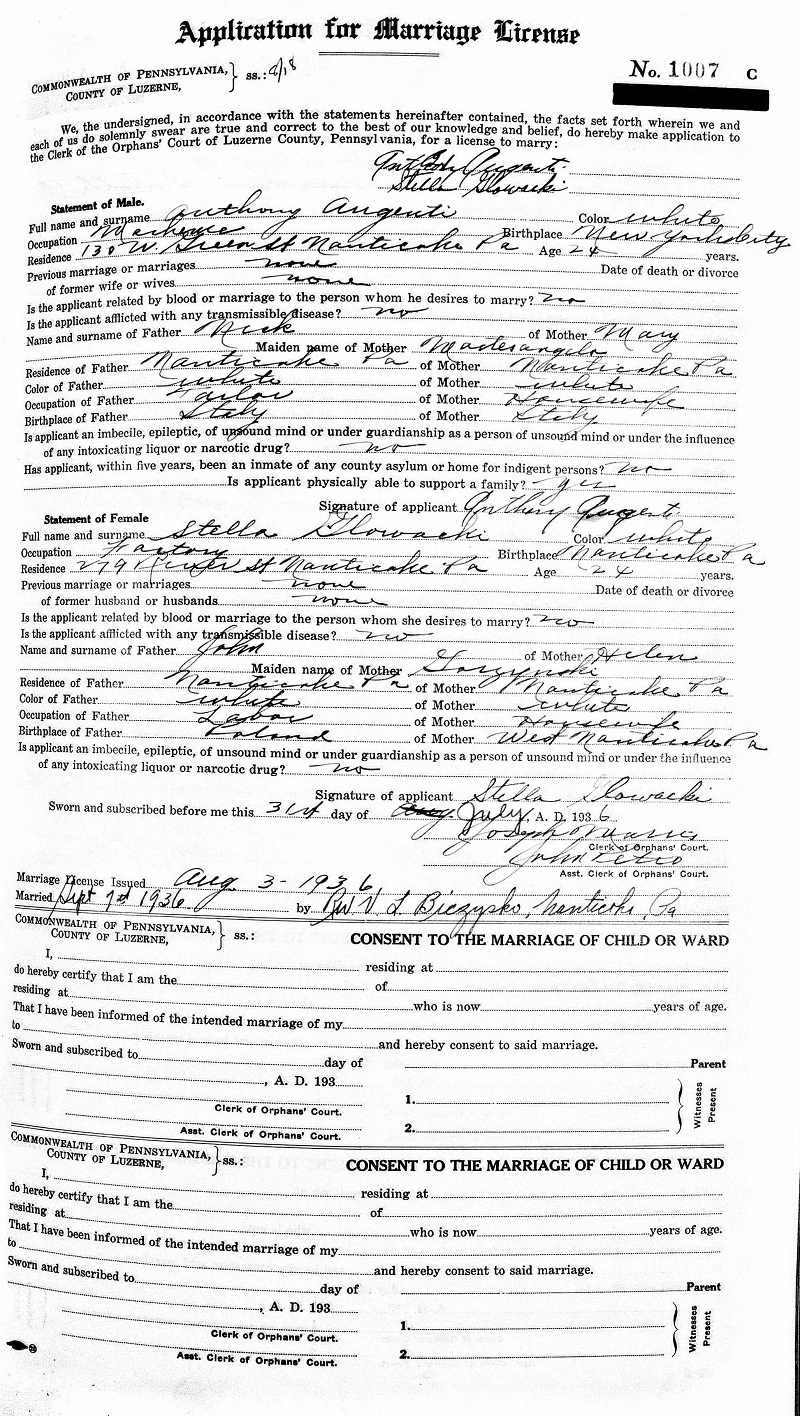 Application for Marriage License
COMMONWEALTH OF PENNSYLVANIA, } ss.:
COUNTY OF LUZERNE,
No. 1007 C
We, the undersigned, in accordance with the statements hereinafter contained, the facts set forth wherein we and
each of us do solemnly swear are true and correct to the best of our knowledge and belief, do hereby make application to
the Clerk of the Orphans' Court of Luzerne County, Pennsylvania, for a license to marry:
Anthony Augenti
Stella Glowacki
Statement of Male.
Full name and surname Anthony Augenti Color white
Occupation Birthplace New York City
Residence 130 W. Green St Nanticoke Pa Age 24 years.
Previous marriage or marriages none Date of death or divorce
of former wife or wives none
Is the applicant related by blood or marriage to the person whom he desires to marry? no
Is the applicant afflicted with any transmissible disease? no
Name and surname of Father Nick of Mother Mary
Maiden name of Mother
Residence of Father Nanticoke Pa of Mother Nanticoke Pa
Color of Father white of Mother white
Occupation of Father Tailor of Mother Housewife
Birthplace of Father Italy of Mother Italy
Is applicant an imbecile, epileptic, of unsound mind or under guardianship as a person of unsound mind or under the influence
of any intoxicating liquor or narcotic drug? no
Has applicant, within five years, been an inmate of any county asylum or home for indigent persons? no
Is applicant physically able to support a family? yes
Signature of applicant Anthony Augenti
Statement of Female
Full name and surname Stella Glowacki Color white
Occupation Factory Birthplace Nanticoke Pa
Residence 279 St Nanticoke Pa Age 24 years.
Previous marriage or marriages none Date of death or divorce
of former husband or husbands none
Is the applicant related by blood or marriage to the person whom she desires to marry? no
Is the applicant afflicted with any transmissible disease? no
Name and surname of Father John of Mother Helen
Maiden name of Mother Gorzynski
Residence of Father Nanticoke Pa of Mother Nanticoke Pa
Color of Father white of Mother white
Occupation of Father Labor of Mother Housewife
Birthplace of Father Poland of Mother West Nanticoke Pa
Is applicant an imbecile, epileptic, of unsound mind or under guardianship as a person of unsound mind or under the influence
of any intoxicating liquor or narcotic drug? no
Signature of applicant Stella Glowacki
Sworn and subscribed before me this 31st day of July, A. D. 1936
Joseph
Clerk of Orphans' Court.
John Petro
Asst. Clerk of Orphans' Court.
Marriage License Issued Aug 3- 1936
Married Sept 7d 1936 by Rev V. L Biczysko, Nanticoke, Pa
COMMONWEALTH OF PENNSYLVANIA, } ss.:
COUNTY OF LUZERNE,
CONSENT TO THE MARRIAGE OF CHILD OR WARD
I, residing at
do hereby certify that I am the of
residing at who is now years of age.
That I have been informed of the intended marriage of my
to and hereby consent to said marriage.
Sworn and subscribed to day of Parent
, A. D. 193 1. Witnesses Present
Clerk of Orphans' Court.
2.
Asst. Clerk of Orphans' Court.
COMMONWEALTH OF PENNSYLVANIA, } ss.:
COUNTY OF LUZERNE,
CONSENT TO THE MARRIAGE OF CHILD OR WARD
I, residing at
do hereby certify that I am the of
residing at who is now years of age.
That I have been informed of the intended marriage of my
to and hereby consent to said marriage.
Sworn and subscribed to day of Parent
, A. D. 193 1. Witnesses Present
Clerk of Orphans' Court.
2.
Asst. Clerk of Orphans' Court.